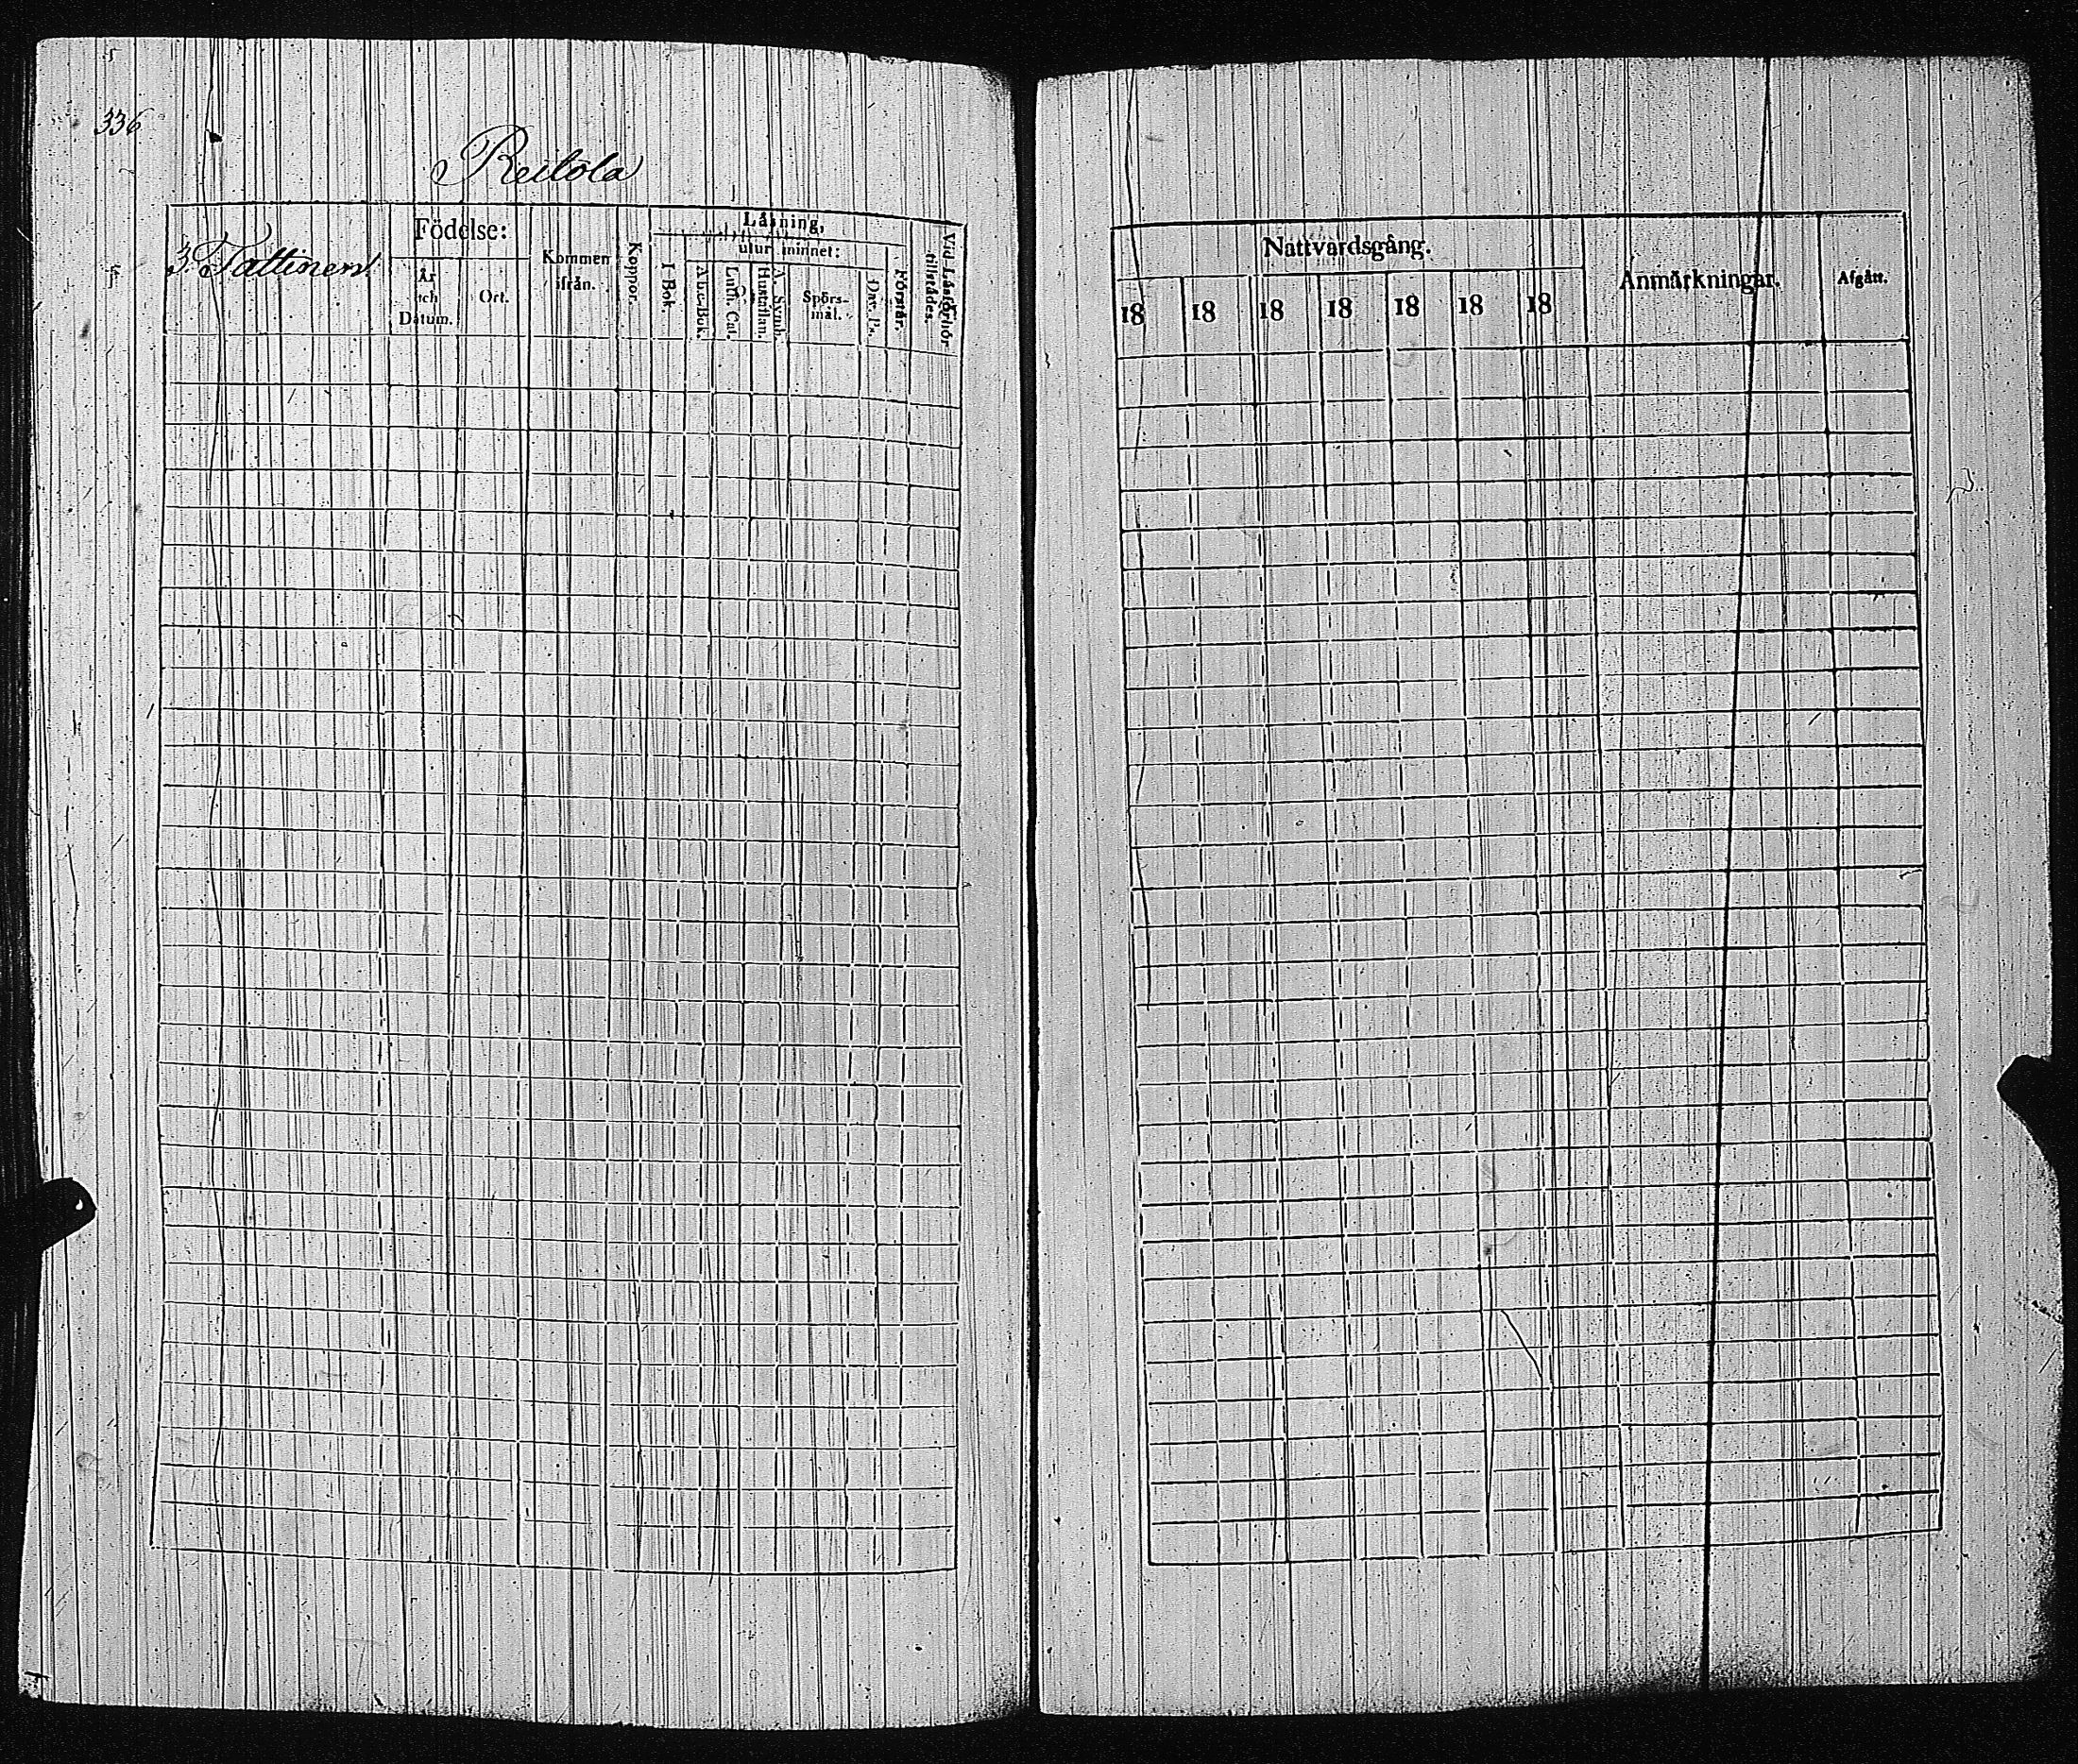 336
Reilola
3. Tattinen.
Födelse:
År och Datum.
Ort.
Kommen ifrån.
Koppor.
Läsning,
utur minnet:
I Bok.
Abc-Bok.
Luth. Cat.
Hustaflan.
A. Symb.
Spörs-
mål.
Dav. Ps.
Förstår.
Vid Läsförhör
tillstädes.
Nattvardsgång.
18 18 18 18 18 18 18
Anmärkningar.
Afgått.